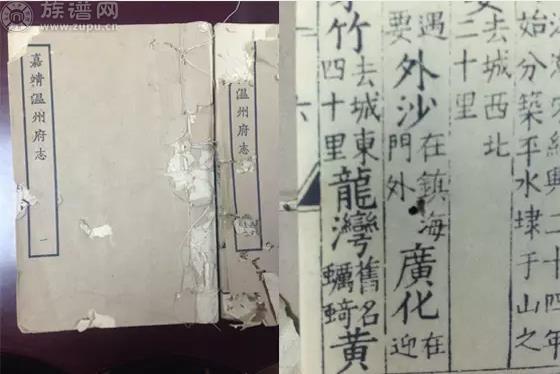 族谱网
www.zupu.cn
嘉靖溫州府志
一
州府志
興二十四年
始分築平水埭于山之
去城西北
二十里
遇
要
外沙
在鎮海
門外
廣化
在
迎
竹
去城東
四十里
龍灣
舊名
蠣
黃